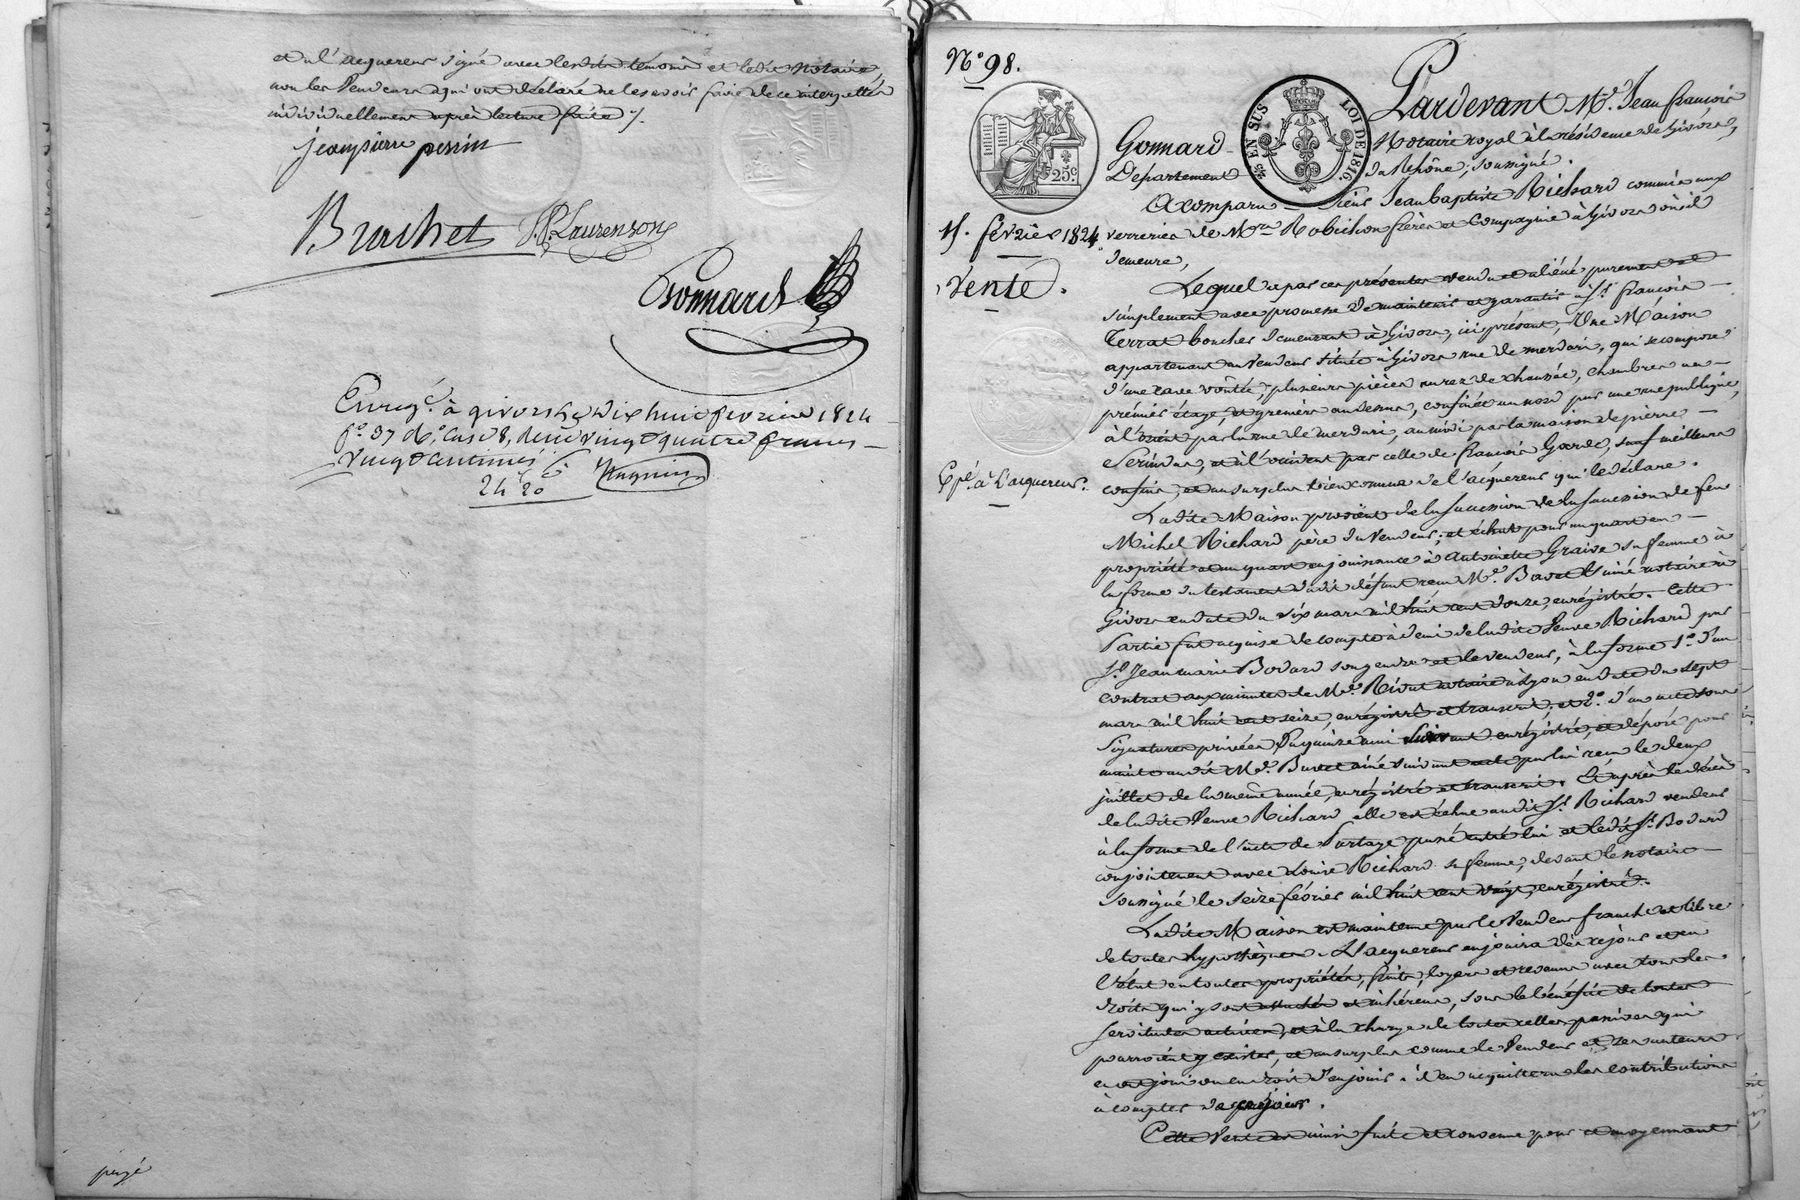 et l'acquereur signé avec lesdits témoins et ledit notaire
non les Vendeurs qui ont déclaré ne le savoir faire de ce interpellés
individuellement après lecture faite ./.
jean pierre perrin
Brachet J. P. Laurenson
Gonnard
Enreg.é à givors le dix huit fevrier 1824
f.o 37 v.o case 8, reçu vingt quatre francs
vingt centimes
24 20
N.o 98.
25 c.
25 EN SUS
LOI DE 1816.
15. février 1824
Vente.
Epé. à l'acquereur.
Pardevant M.e Jean françois
Gonnard Notaire royal à la résidence de Givors,
Département du Rhône, soussigné.
A comparu Sieur Jean baptiste Richard commis aux
verreries de M.rs Robichon frères et Compagnie à Givors où il
demeure,
Lequel a par ces présentes vendu et aliéné purement et
simplement avec promesse de maintenir et garantir à S.r françois
Terrat boucher demeurant à Givors, ici présent, Une Maison
appartenant au Vendeur située à Givors rue de merdari, qui se compose
d'une cave voûtée, plusieurs pièces au rez de chaussée, chambres au
premier étage, et greniers au dessus, confinée au nord par une rue publique,
à l'orient par la rue de merdari, au midi par la maison de pierre
et à l'occident par celle de françois Gorde, sauf meilleurs
confins, et au surplus bien connue de l'acquéreur qui le déclare.
Ladite Maison provient de la succession de la succession de feu
Michel Richard père du Vendeur, et échut pour un quart en
propriété et un quart en jouissance à Antoinette Graive sa femme à
la forme du testament dudit défunt reçu M.e Bavet ainé notaire à
Givors en date du six mars mil huit cent douze, enrégistré. Cette
Partie fut acquise de compte à demi de ladite Veuve Richard par
S.r Jean marie Bodard son gendre et le vendeur, à la forme 1.o d'un
contrat aux minutes de M.e Rivat notaire à Lyon en date du sept
mars mil huit cent seize, enrégistré et transcrit, et 2.o d'un acte sous
Signatures privées du quinze mai suivant enrégistré, et déposé pour
minute audit M.e Bavet ainé suivant acte par lui reçu le deux
juillet de la même année, enrégistré et transcrit. Et après le décès
de ladite Veuve Richard elle est échue audit S.r Richard vendeur
à la forme de l'acte de Partage passé entre lui et ledit S.r Bodard
conjointement avec Louise Richard sa femme, devant le notaire
soussigné le seize février mil huit cent vingt, enrégistré.
Ladite Maison est maintenue par le Vendeur franche et libre
de toutes hypothèques. L'acquereur en jouira dès ce jour et en
l'état en toutes propriétés, fruits, loyers et revenus avec tous les
droits qui y sont attachés et inhérens, sous le bénéfice de toutes
servitudes actives, et à la charge de toutes celles passives qui
pourroient y exister, et au surplus comme le Vendeur et ses auteurs
en ont joui ou eu droit d'en jouir. il en acquittera les contributions
à compter de ce jour.
Cette Vente est ainsi faite et consentie pour et moyennant
purgé